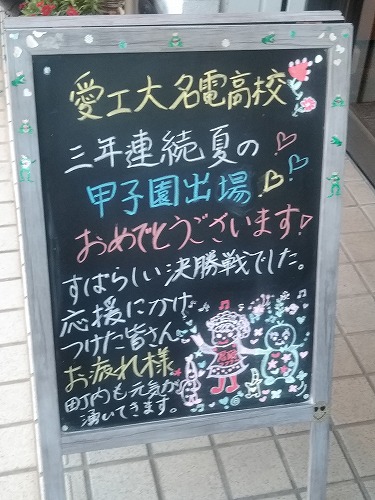 愛工大名電高校
三年連続夏の
甲子園出場
おめでとうございます
すばらしい決勝戦でした。
応援にかけ
つけた皆さん
お疲れ様
町内も元気が
湧いてきます。